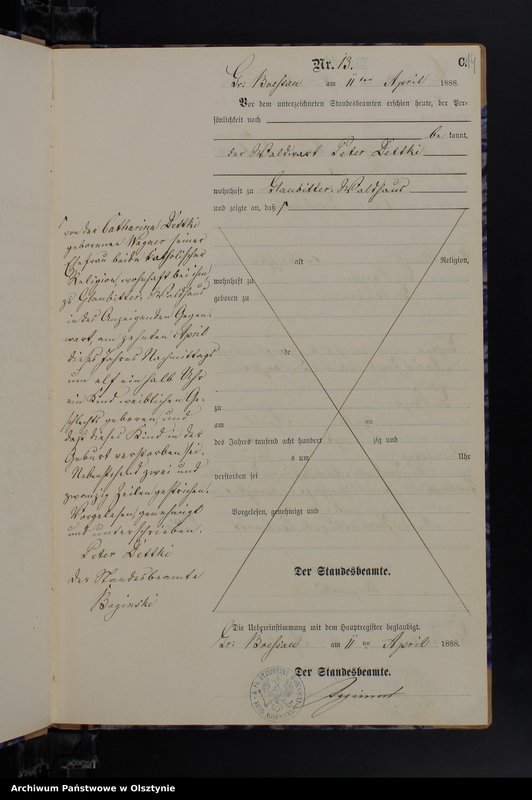 Nr. 13.
C.
14
Gr: Boessau am 11 ten April 1888.
Vor dem unterzeichneten Standesbeamten erschien heute, der Per-
sönlichkeit nach
be kannt,
der Waldwart Peter Dettki
wohnhaft zu Glaubitter, Waldhaus
und zeigte an, daß
von der Catharina Dettki
geborenen Wagner seiner
Ehefrau beide katholischer
Religion, wohnhaft bei ihm
zu Glaubitter, Waldhaus
in des Anzeigenden Gegen-
wart, am zehnten April
dieses Jahres Nachmittags
um elf ein halb Uhr
ein Kind weiblichen Ge-
schlechts geboren, und
daß dieses Kind in der
Geburt verstorben sei.
Nebenstehend zwei und
zwanzig Zeilen gestrichen.
Vorgelesen, genehmigt
und unterschrieben.
Peter Dettki
Der Standesbeamte
Baginski
alt Religion,
wohnhaft zu
geboren zu
de
zu
am ten
des Jahres tausend acht hundert zig und
s um Uhr
verstorben sei
Vorgelesen, genehmigt und
Der Standesbeamte.
Die Uebereinstimmung mit dem Hauptregister beglaubigt.
Gr: Boessau am 11 ten April 1888.
Der Standesbeamte.
Archiwum Państwowe w Olsztynie